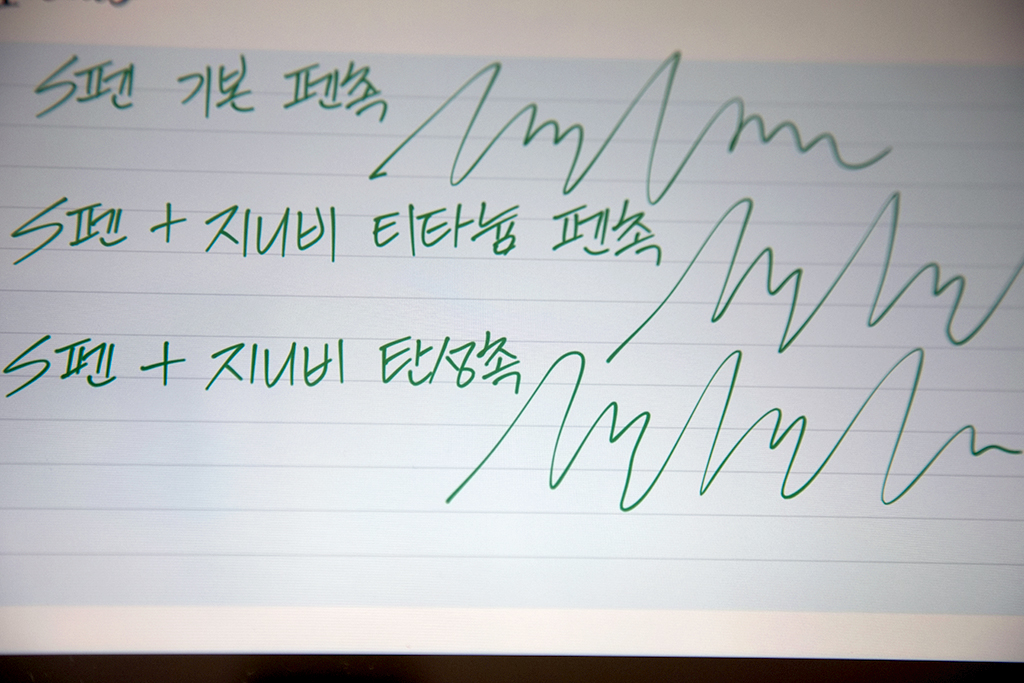 S펜 기본 펜촉
S펜 + 지니비 티타늄 펜촉
S펜 + 지니비 탄성촉